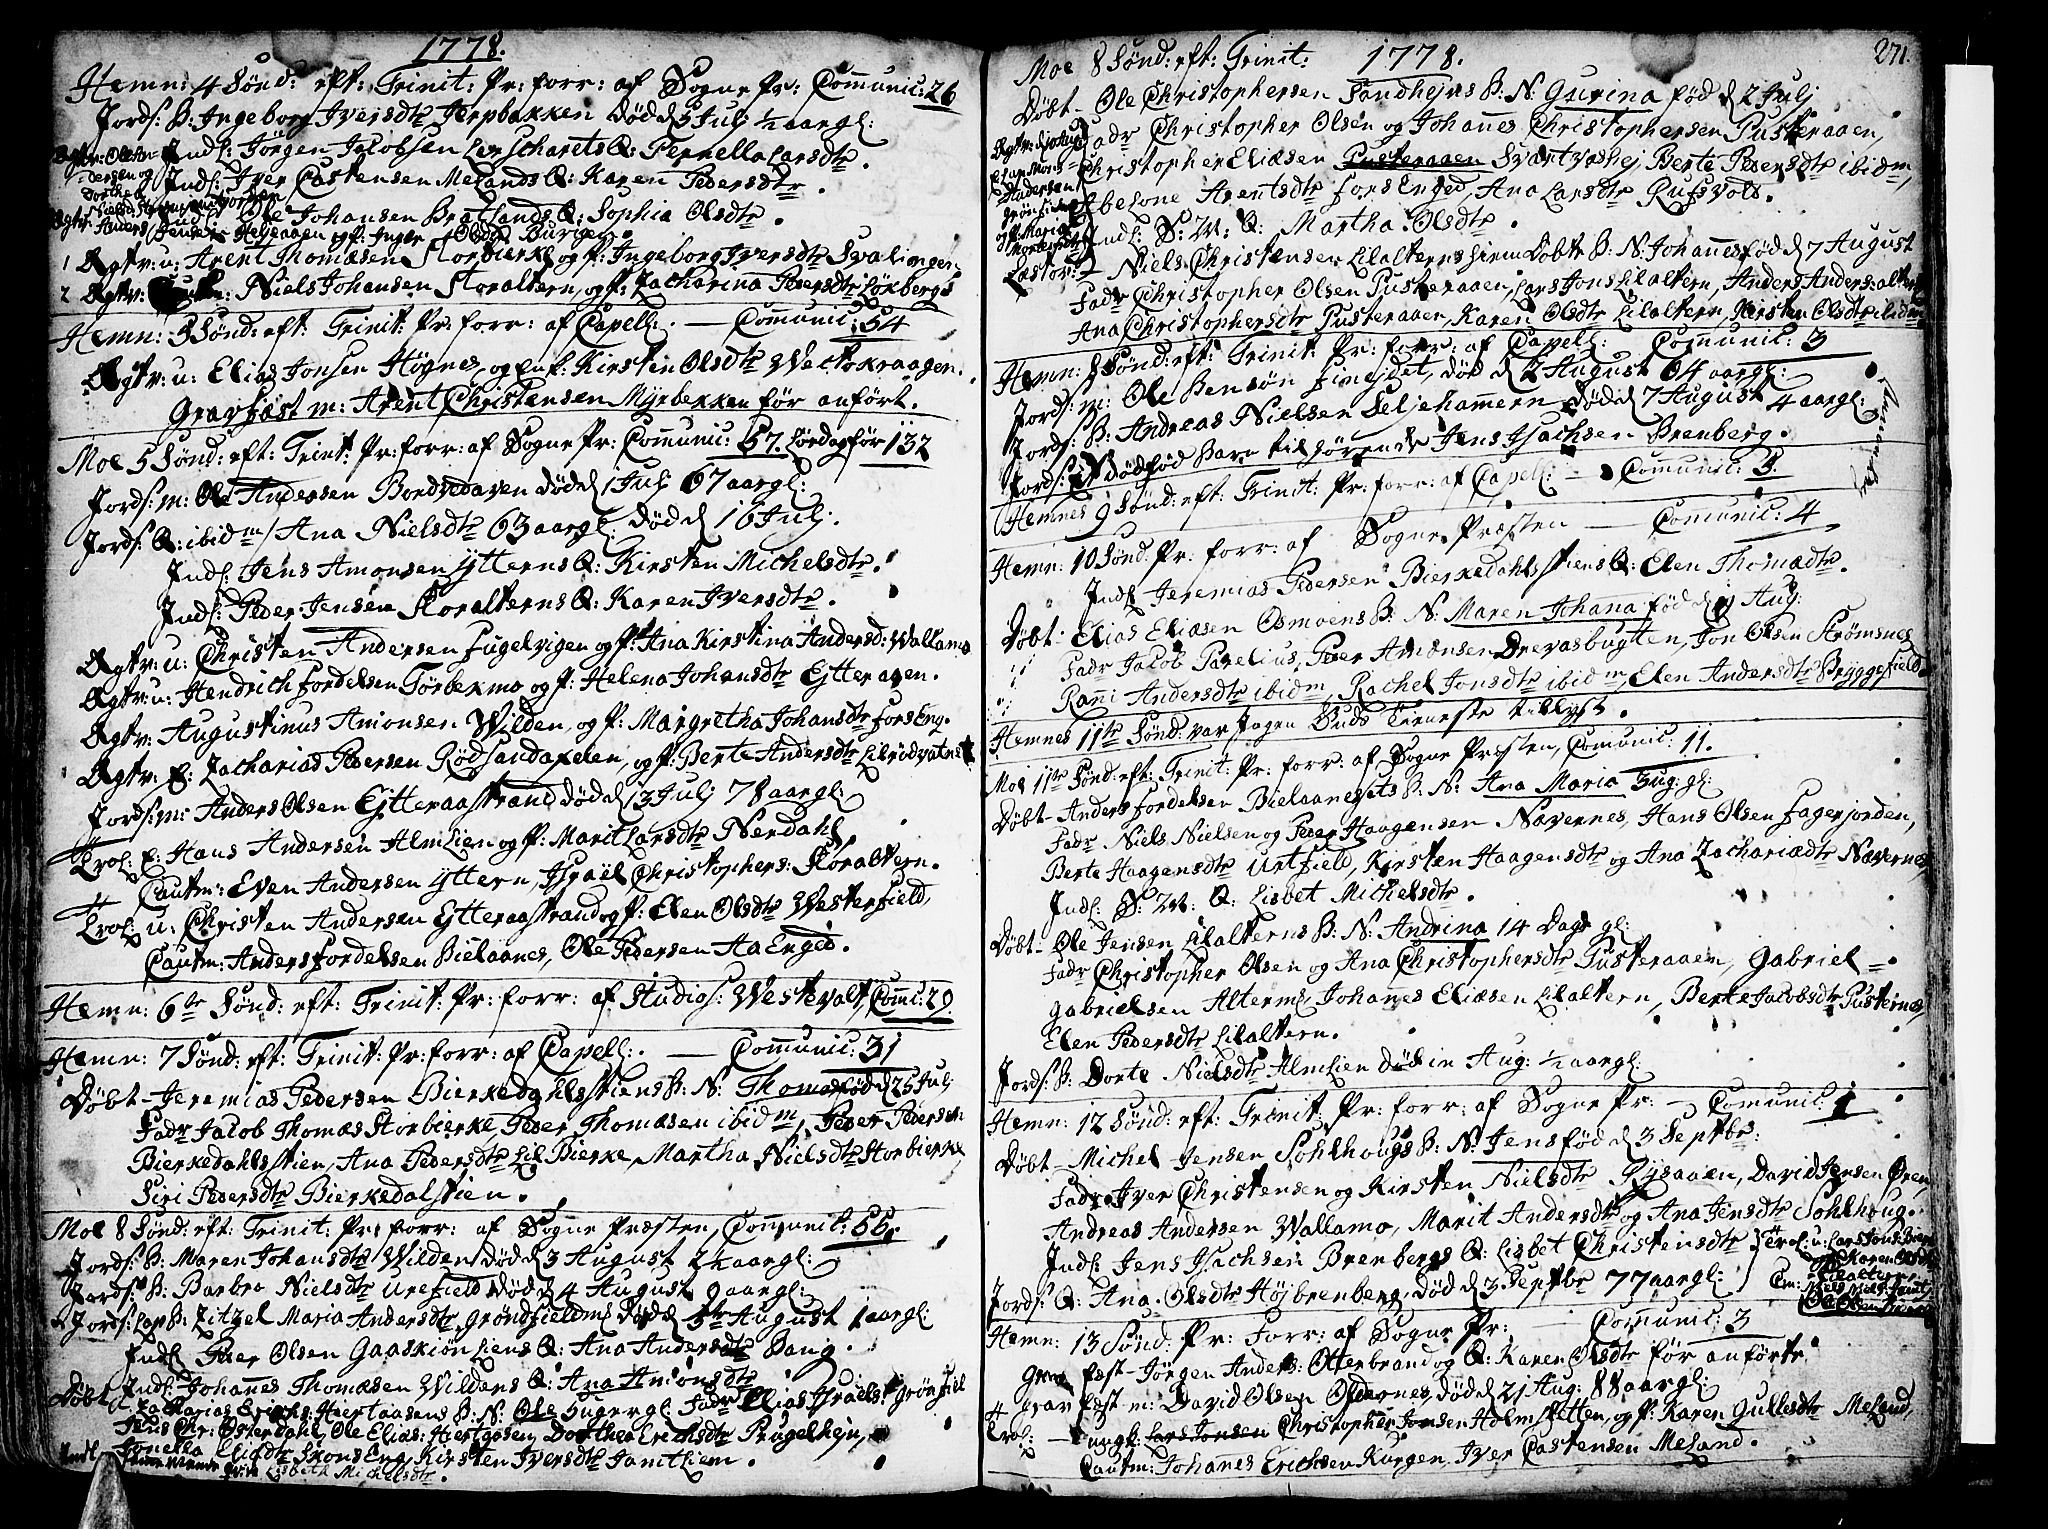 1778.
Hemn: 4 Sønd: eft: Trinit: Pr: forr: af Sogne Pr: Comunic: 26
Jords: B: Ingeborg Iversdtr Jerpbakken død d 5 Julj ½ aar gl:
Indl: Jörgen Jacobsen Q: Pernella Larsdtr.
Indl: Iver Castensen Melands Q: Karen Pedersdtr.
Ole Johansen Bratlands Q: Sophia Olsdtr.
1 Ægtv: u: Arent Thomæsen Storbierke og p: Ingeborg Iversdtr Svalingen
2 Ægtv: Niels Johansen Storaltern, og p: Zacharina Pedersdtr Løkbergs
Hemn: 5 Sønd: eft: Trinit: Pr: forr: af Capell: — Comunic: 54
Ægtv: u: Elias Jonsen Högnes, og Enk: Kirsten Olsdtr Weltokraagen.
Gravfæst m: Arent Christensen Myrbekken før anført.
Moe 5 Sønd: eft: Trinit: Pr: forr: af Sogne Pr: Comunic: 57. Lørdag før 132
Jords: m: Ole Andersen Bordvedaven død d 1 Julj 67 aar gl:
Jords: Q: ibidm / Ana Nielsdtr 63 aar gl: død d 16 Julj.
Indl: Jens Amonsen Ytterns Q: Kirsten Michelsdtr.
Indl: Peder Jensen Storalterns Q: Karen Iversdtr.
Ægtv: u: Christen Andersen Fugelvigen og p: Ana Kirstina Andersd: Wallamo
Ægtv: u: Hendrich Fordelsen Törbekmo og p: Helena Johansdtr Ejtteraaen.
Ægtv: Augustinus Amonsen Wilden, og p: Margretha Johansdtr Fors Eng.
Ægtv: E: Zacharias Pedersen Rödsandaxelen, og p: Berte Andersdtr Lilrødvatnet
Jords: m: Anders Olsen Ejtteraastrand død d 13 Julj 78 aar gl:
Trol: E: Hans Andersen Almlien og p: Marit Larsdtr Nerdahl.
Cautm: Even Andersen Yttern, Israël Christophers: Storaltern.
Trol: u: Christen Andersen Ejtteraastrand og p: Elen Olsdtr Westerfield,
Cautm: Anders Fordelsen Bielaanes, Ole Pedersen Aa Enged.
Hemn: 6te Sønd: eft: Trinit: Pr: forr: af Studios: Westevalt, Comu: 29.
Hemn: 7 Sønd: eft: Trinit: Pr: forr: af Capell: — Comunic: 31
Døbt - Jeremias Pedersen Bierkedahlsstiens B: N: Thomæ fød d 25 Julj
Fadr Jacob Thomæs Storbierke, Peder Thomæsen ibidm, Peder Pedersen
Bierkedahlsstien, Ana Pedersdtr Lil Bierke, Martha Nielsdtr Storbierke
Siri Pedersdtr Bierkedalstien.
Moe 8 Sønd: eft: Trinit: Pr: forr: af Sogne Præsten, Comunic: 55.
Jords: B: Maren Johansdtr Wilden død d 3 August 2½ aar gl:
Jords: B: Barbro Nielsdtr Urefield død d 4 August 9 aar gl:
Jords: Lap B: Zitzel Maria Andersdtr Grøndfieldm: død d 5te August 1 aar gl:
Indl: Peder Olsen Gaaskiönliens Q: Ana Andersdtr Bang.
Indl: Johannes Thomæsen Wildens Q: Ana Amonsdtr
Døbt Zacharias Erichs: Hiertaasens B: N: Ole 5 uger gl: Fadr Elias Israels: Grönfiel
Jens Chr: Österdahl, Ole Elias: Hertaasen, Dorthea Erichsdtr Prugelhejn,
Fonella Eliædtr Skons Eng, Kirsten Iversdtr Jamtliem.
Lisbeth Michelsdtr.
271.
Moe 8 Sønd: eft: Trinit: 1778.
Døbt - Ole Christophersen Sandhejns B: N: Gurina fød d 2 Julj
Fadr Christopher Olsen og Johanes Christophersen Pusteraaen,
Christopher Eliæsen Pusteraaen Svartvashej Berte Pedersdtr ibidm,
Abelone Arentsdtr Fors Enged, Ana Larsdtr Rufsvold.
Indl: S: M: Q: Martha Olsdtr.
Niels Christensen Lilalterns hiem Døbt B: N: Johannes fød d 7 August
Fadr Christopher Olsen Pusteraaen, Lars Jons Lilaltern, Anders Anders: altern
Ana Christophersdtr Pusteraaen, Karen Olsdtr Lilaltern, Kirsten Olsdtr ibidm
Hemn: 8 Sønd: eft: Trinit: Pr: forr: af Capell: Comunic: 3
Jords: m: Ole Bensøn Finejdet, død d 2 August 64 aar gl:
Jords: B: Andreas Nielsen Seljehamern død d 7 August 4 aar gl:
Jords: Et Dødfød Barn tilhørende Jens Isachsen Brenberg.
Hemnes 9 Sønd: eft: Trinit: Pr: forr: af Capell: — Comunic: 5.
Hemn: 10 Sønd: Pr: forr: af Sogne Præsten — Comunic: 4
Indl: Jeremias Pedersen Bierkedahlsstiens Q: Elen Thomædtr.
Døbt: Elias Eliæsen Osmoens B: N: Maren Johana fød d 9 Aug:
Fadr Jacob Pavelius, Peder Amonsen Drevasbugten, Jon Olsen Strömsnes
Rani Andersdtr ibidm, Rachel Jonsdtr ibidm, Elen Andersdtr Bryggefield.
Hemnes 11te Sønd: var Ingen Guds Tieneste tillyst.
Moe 11te Sønd: eft: Trinit: Pr: forr: af Sogne Præsten, Comunic: 11.
Døbt - Anders Fordelsen Bielaanesets B: N: Ana Maria 3 ug: gl:
Fadr Niels Nielsen og Peder Haagensen Nævernes, Hans Olsen Fagerjorden,
Berte Haagensdtr Urtfield, Kirsten Haagensdtr og Ana Zachariædtr Nævernes
Indl: S: M: Q: Lisbet Michelsdtr.
Døbt - Ole Jensen Lilalterns B: N: Andrina 14 Dage gl:
Fadr Christopher Olsen og Ana Christophersdtr Pusteraaen, Gabriel -
Gabrielsen Alterm: Johanes Eliæsen Lilaltern, Berte Jacobsdtr Pusternæs
Elen Pedersdtr Lilaltern.
Jords: B: Dorte Nielsdtr Almlien død in Aug: ½ aar gl:
Hemn: 12 Sønd: eft: Trinit: Pr: forr: af Sogne Pr: — Comunic: 1
Døbt - Michel Jensen Sohlhougs B: N: Jens fød d 3 Septbr:
Fadr Iver Christensen og Kirsten Nielsdtr Rysaaen, David Jensen Øren,
Andreas Andersen Wallamo, Marit Andersdtr og Ana Jensdtr Sohlhoug.
Indl: Jens Isachsen Brenbergs Q: Lisbet Christensdtr
Jords: Q: Ana Olsdtr Höjbrenberg, død d 3 Septbr 77 aar gl:
Hemn: 13 Sønd: Pr: forr: af Sogne Pr: — Comunic: 3
Grav fæst - Jørgen Anders: Otterbrand og Q: Karen Olsdtr før anførte
Grav fæst - m: David Olsen Oldernes, død d 21 Aug: 88 aar gl:
Trol: — Ungk: Lars Jonsen Christopher Jonsen Holmsletten, og p: Karen Gullesdtr Meland,
Cautm: Johanes Erichsen Kurgen, Iver Castensen Meland.